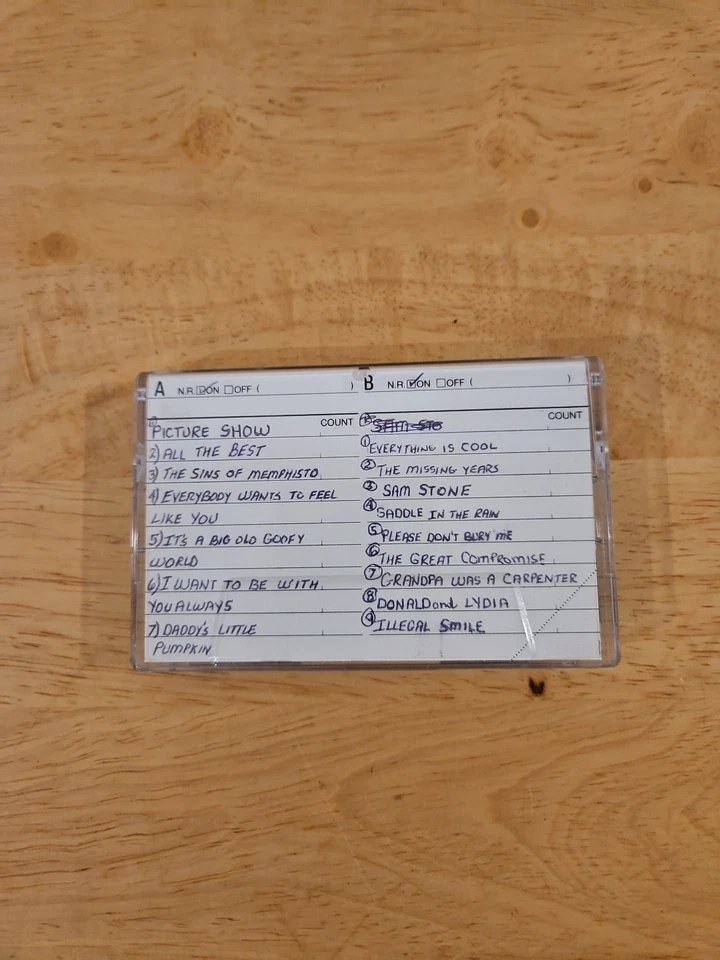 A N.R. ☑ON ☐OFF ( )
COUNT
1) PICTURE SHOW
2) ALL THE BEST
3) THE SINS OF MEMPHISTO
4) EVERYBODY WANTS TO FEEL
LIKE YOU
5) IT'S A BIG OLD GOOFY
WORLD
6) I WANT TO BE WITH
YOU ALWAYS
7) DADDY'S LITTLE
PUMPKIN
B N.R. ☑ON ☐OFF ( )
COUNT
SAM STO
① EVERYTHING IS COOL
② THE MISSING YEARS
③ SAM STONE
④ SADDLE IN THE RAIN
⑤ PLEASE DON'T BURY ME
⑥ THE GREAT COMPROMISE
⑦ GRANDPA WAS A CARPENTER
⑧ DONALD and LYDIA
⑨ ILLEGAL SMILE